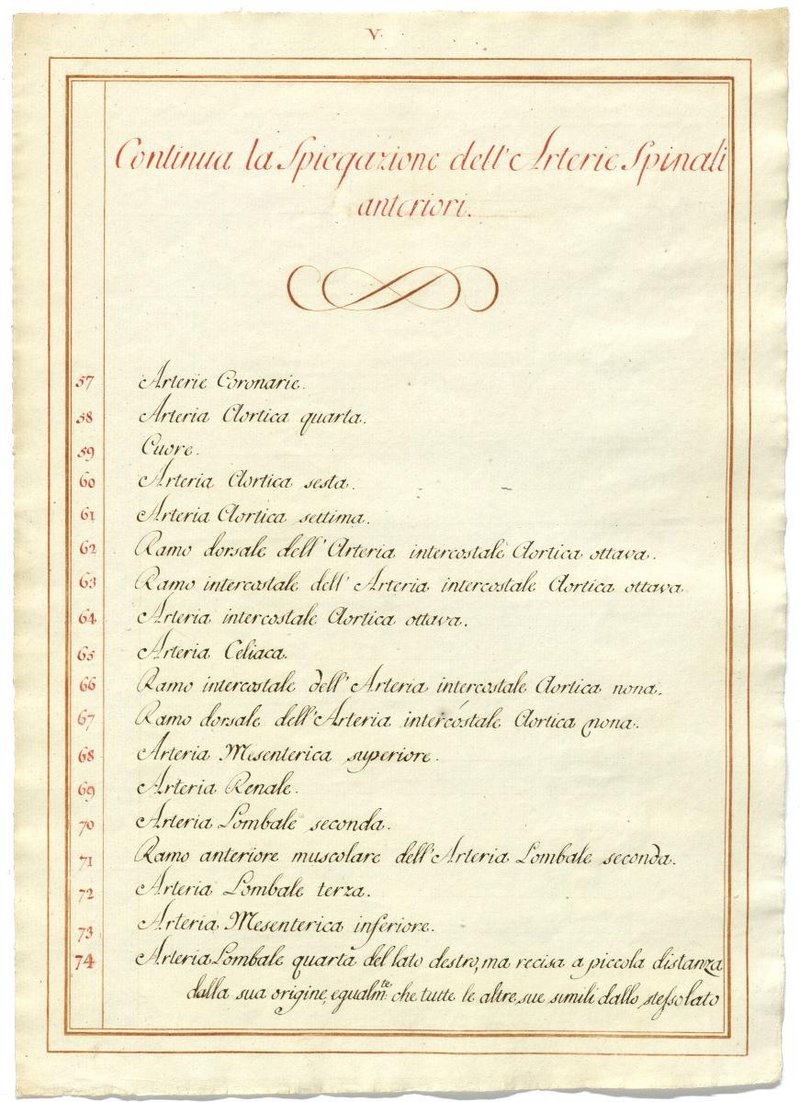 V.
Continua la Spiegazione dell'Arterie Spinali
anteriori.
57 Arterie Coronarie.
58 Arteria Aortica quarta.
59 Cuore.
60 Arteria Aortica sesta.
61 Arteria Aortica settima.
62 Ramo dorsale dell'Arteria intercostale Aortica ottava.
63 Ramo intercostale dell'Arteria intercostale Aortica ottava
64 Arteria intercostale Aortica ottava.
65 Arteria Celiaca.
66 Ramo intercostale dell'Arteria intercostale Aortica nona.
67 Ramo dorsale dell'Arteria intercostale Aortica nona.
68 Arteria Mesenterica superiore.
69 Arteria Renale.
70 Arteria Lombale seconda.
71 Ramo anteriore muscolare dell'Arteria Lombale seconda.
72 Arteria Lombale terza.
73 Arteria Mesenterica inferiore.
74 Arteria Lombale quarta del lato destro, ma recisa a piccola distanza
dalla sua origine, egualmte. che tutte le altre sue simili dallo stesso lato